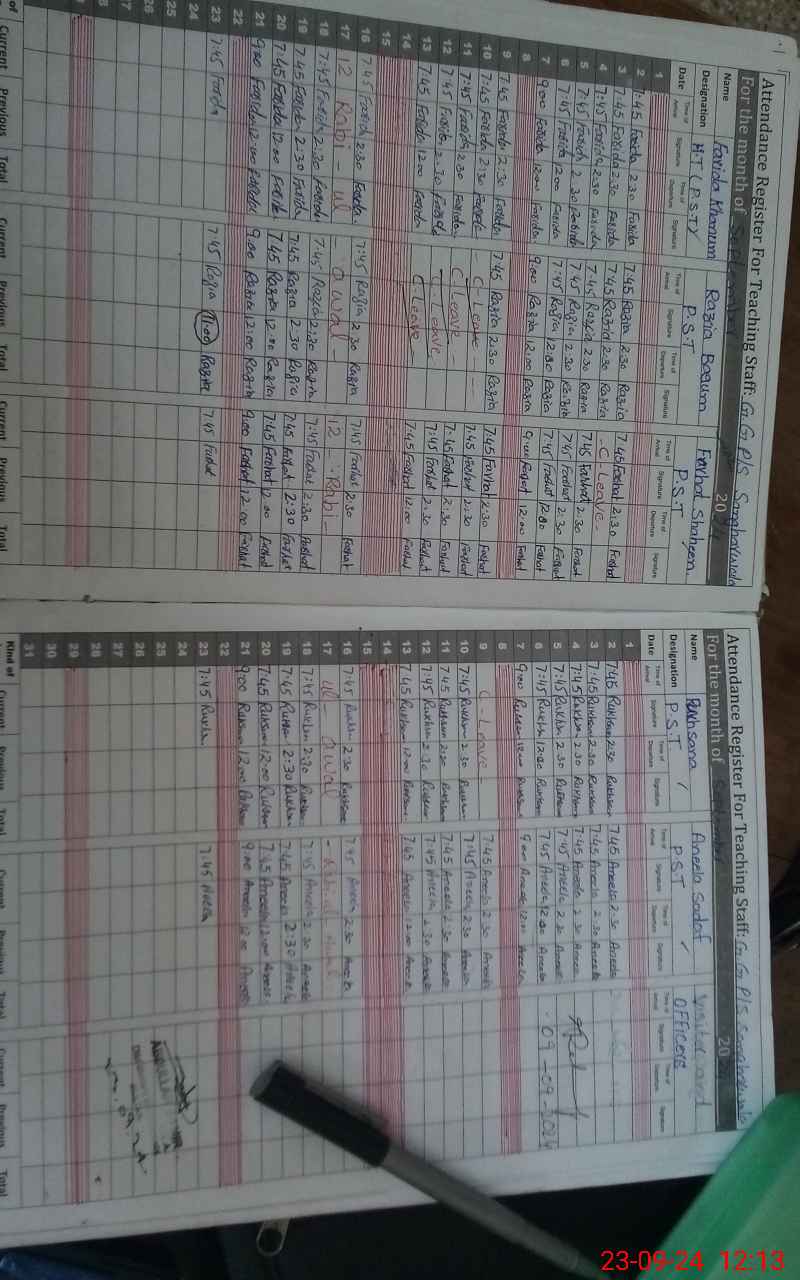 Attendance Register For Teaching Staff: G.G.P/S Sanghorwala
For the month of September 2024
Name Farida Khanum Razia Begum Farhat Shaheen
Designation H.T (P.S.T) P.S.T P.S.T
Date Time of Arrival Signature Time of Departure Signature Time of Arrival Signature Time of Departure Signature Time of Arrival Signature Time of Departure Signature
1
2 7:45 Farida 2:30 Farida 7:45 Razia 2:30 Razia 7:45 Farhat 2:30 Farhat
3 7:45 Farida 2:30 Farida 7:45 Razia 2:30 Razia C-Leave
4 7:45 Farida 2:30 Farida 7:45 Razia 2:30 Razia 7:45 Farhat 2:30 Farhat
5 7:45 Farida 2:30 Farida 7:45 Razia 2:30 Razia 7:45 Farhat 2:30 Farhat
6 7:45 Farida 12:00 Farida 7:45 Razia 12:30 Razia 7:45 Farhat 12:30 Farhat
7 9:00 Farida 12:00 Farida 9:00 Razia 12:00 Razia 9:00 Farhat 12:00 Farhat
8
9 7:45 Farida 2:30 Farida 7:45 Razia 2:30 Razia 7:45 Farhat 2:30 Farhat
10 7:45 Farida 2:30 Farida C-Leave 7:45 Farhat 2:30 Farhat
11 7:45 Farida 2:30 Farida C-Leave 7:45 Farhat 2:30 Farhat
12 7:45 Farida 2:30 Farida C-Leave 7:45 Farhat 2:30 Farhat
13 7:45 Farida 12:00 Farida C-Leave 7:45 Farhat 12:00 Farhat
14
15
16 7:45 Farida 2:30 Farida 7:45 Razia 2:30 Razia 7:45 Farhat 2:30 Farhat
17 12 Rabi - ul - Awal - 12 - Rabi
18 7:45 Farida 2:30 Farida 7:45 Razia 2:30 Razia 7:45 Farhat 2:30 Farhat
19 7:45 Farida 2:30 Farida 7:45 Razia 2:30 Razia 7:45 Farhat 2:30 Farhat
20 7:45 Farida 12:00 Farida 7:45 Razia 12:00 Razia 7:45 Farhat 12:00 Farhat
21 9:00 Farida 12:00 Farida 9:00 Razia 12:00 Razia 9:00 Farhat 12:00 Farhat
22
23 7:45 Farida 7:45 Razia 11:00 Razia 7:45 Farhat
24
25
26
of Current Previous Total Current Previous Total Current Previous Total
Attendance Register For Teaching Staff: G.G.P/S Sanghorwala
For the month of September 20
Name Rukhsana Aneela Sadaf Visiting
Designation P.S.T P.S.T OFFICERS
Date Time of Arrival Signature Time of Departure Signature Time of Arrival Signature Time of Departure Signature Time of Arrival Signature Time of Departure Signature
1
2 7:45 Rukhsan 2:30 Rukhsan 7:45 Aneela 2:30 Aneela
3 7:45 Rukhsan 2:30 Rukhsan 7:45 Aneela 2:30 Aneela
4 7:45 Rukhsan 2:30 Rukhsan 7:45 Aneela 2:30 Aneela
5 7:45 Rukhsan 2:30 Rukhsan 7:45 Aneela 2:30 Aneela
6 7:45 Rukhsan 12:30 Rukhsan 7:45 Aneela 12:30 Aneela 09-09-2024
7 9:00 Rukhsan 12:00 Rukhsan 9:00 Aneela 12:00 Aneela
8
9 C-Leave 7:45 Aneela 2:30 Aneela
10 7:45 Rukhsan 2:30 Rukhsan 7:45 Aneela 2:30 Aneela
11 7:45 Rukhsan 2:30 Rukhsan 7:45 Aneela 2:30 Aneela
12 7:45 Rukhsan 2:30 Rukhsan 7:45 Aneela 2:30 Aneela
13 7:45 Rukhsan 12:00 Rukhsan 7:45 Aneela 12:00 Aneela
14
15
16 7:45 Rukhsan 2:30 Rukhsana 7:45 Aneela 2:30 Aneela
17 Ul - Awal
18 7:45 Rukhsan 2:30 Rukhsan 7:45 Aneela 2:30 Aneela
19 7:45 Rukhsan 2:30 Rukhsan 7:45 Aneela 2:30 Aneela
20 7:45 Rukhsan 12:00 Rukhsan 7:45 Aneela 12:00 Aneela
21 9:00 Rukhsan 12:00 Rukhsan 9:00 Aneela 12:00 Aneela
22
23 7:45 Rukhsan 7:45 Aneela
24
25
26
27
28
29
30
31
Kind of Current Previous Total Current Previous Total Current Previous Total
23-09-24 12:13